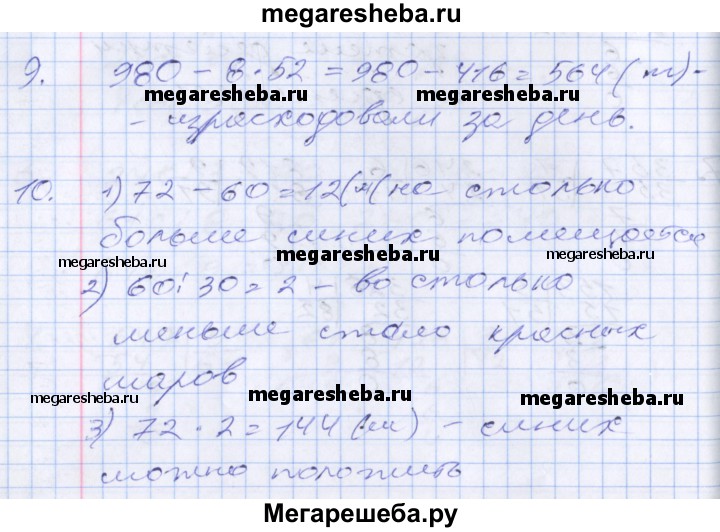 megaresheba.ru
9. 980 - 8 · 52 = 980 - 416 = 564 (т) -
megaresheba.ru megaresheba.ru
- израсходовали за день.
10. 1) 72 - 60 = 12 (м) на столько
больше синих помещается
megaresheba.ru megaresheba.ru
2) 60 : 30 = 2 - во столько
меньше стало красных
шаров
megaresheba.ru megaresheba.ru megaresheba.ru
3) 72 · 2 = 144 (м) - синих
можно положить
Мегарешеба.ру